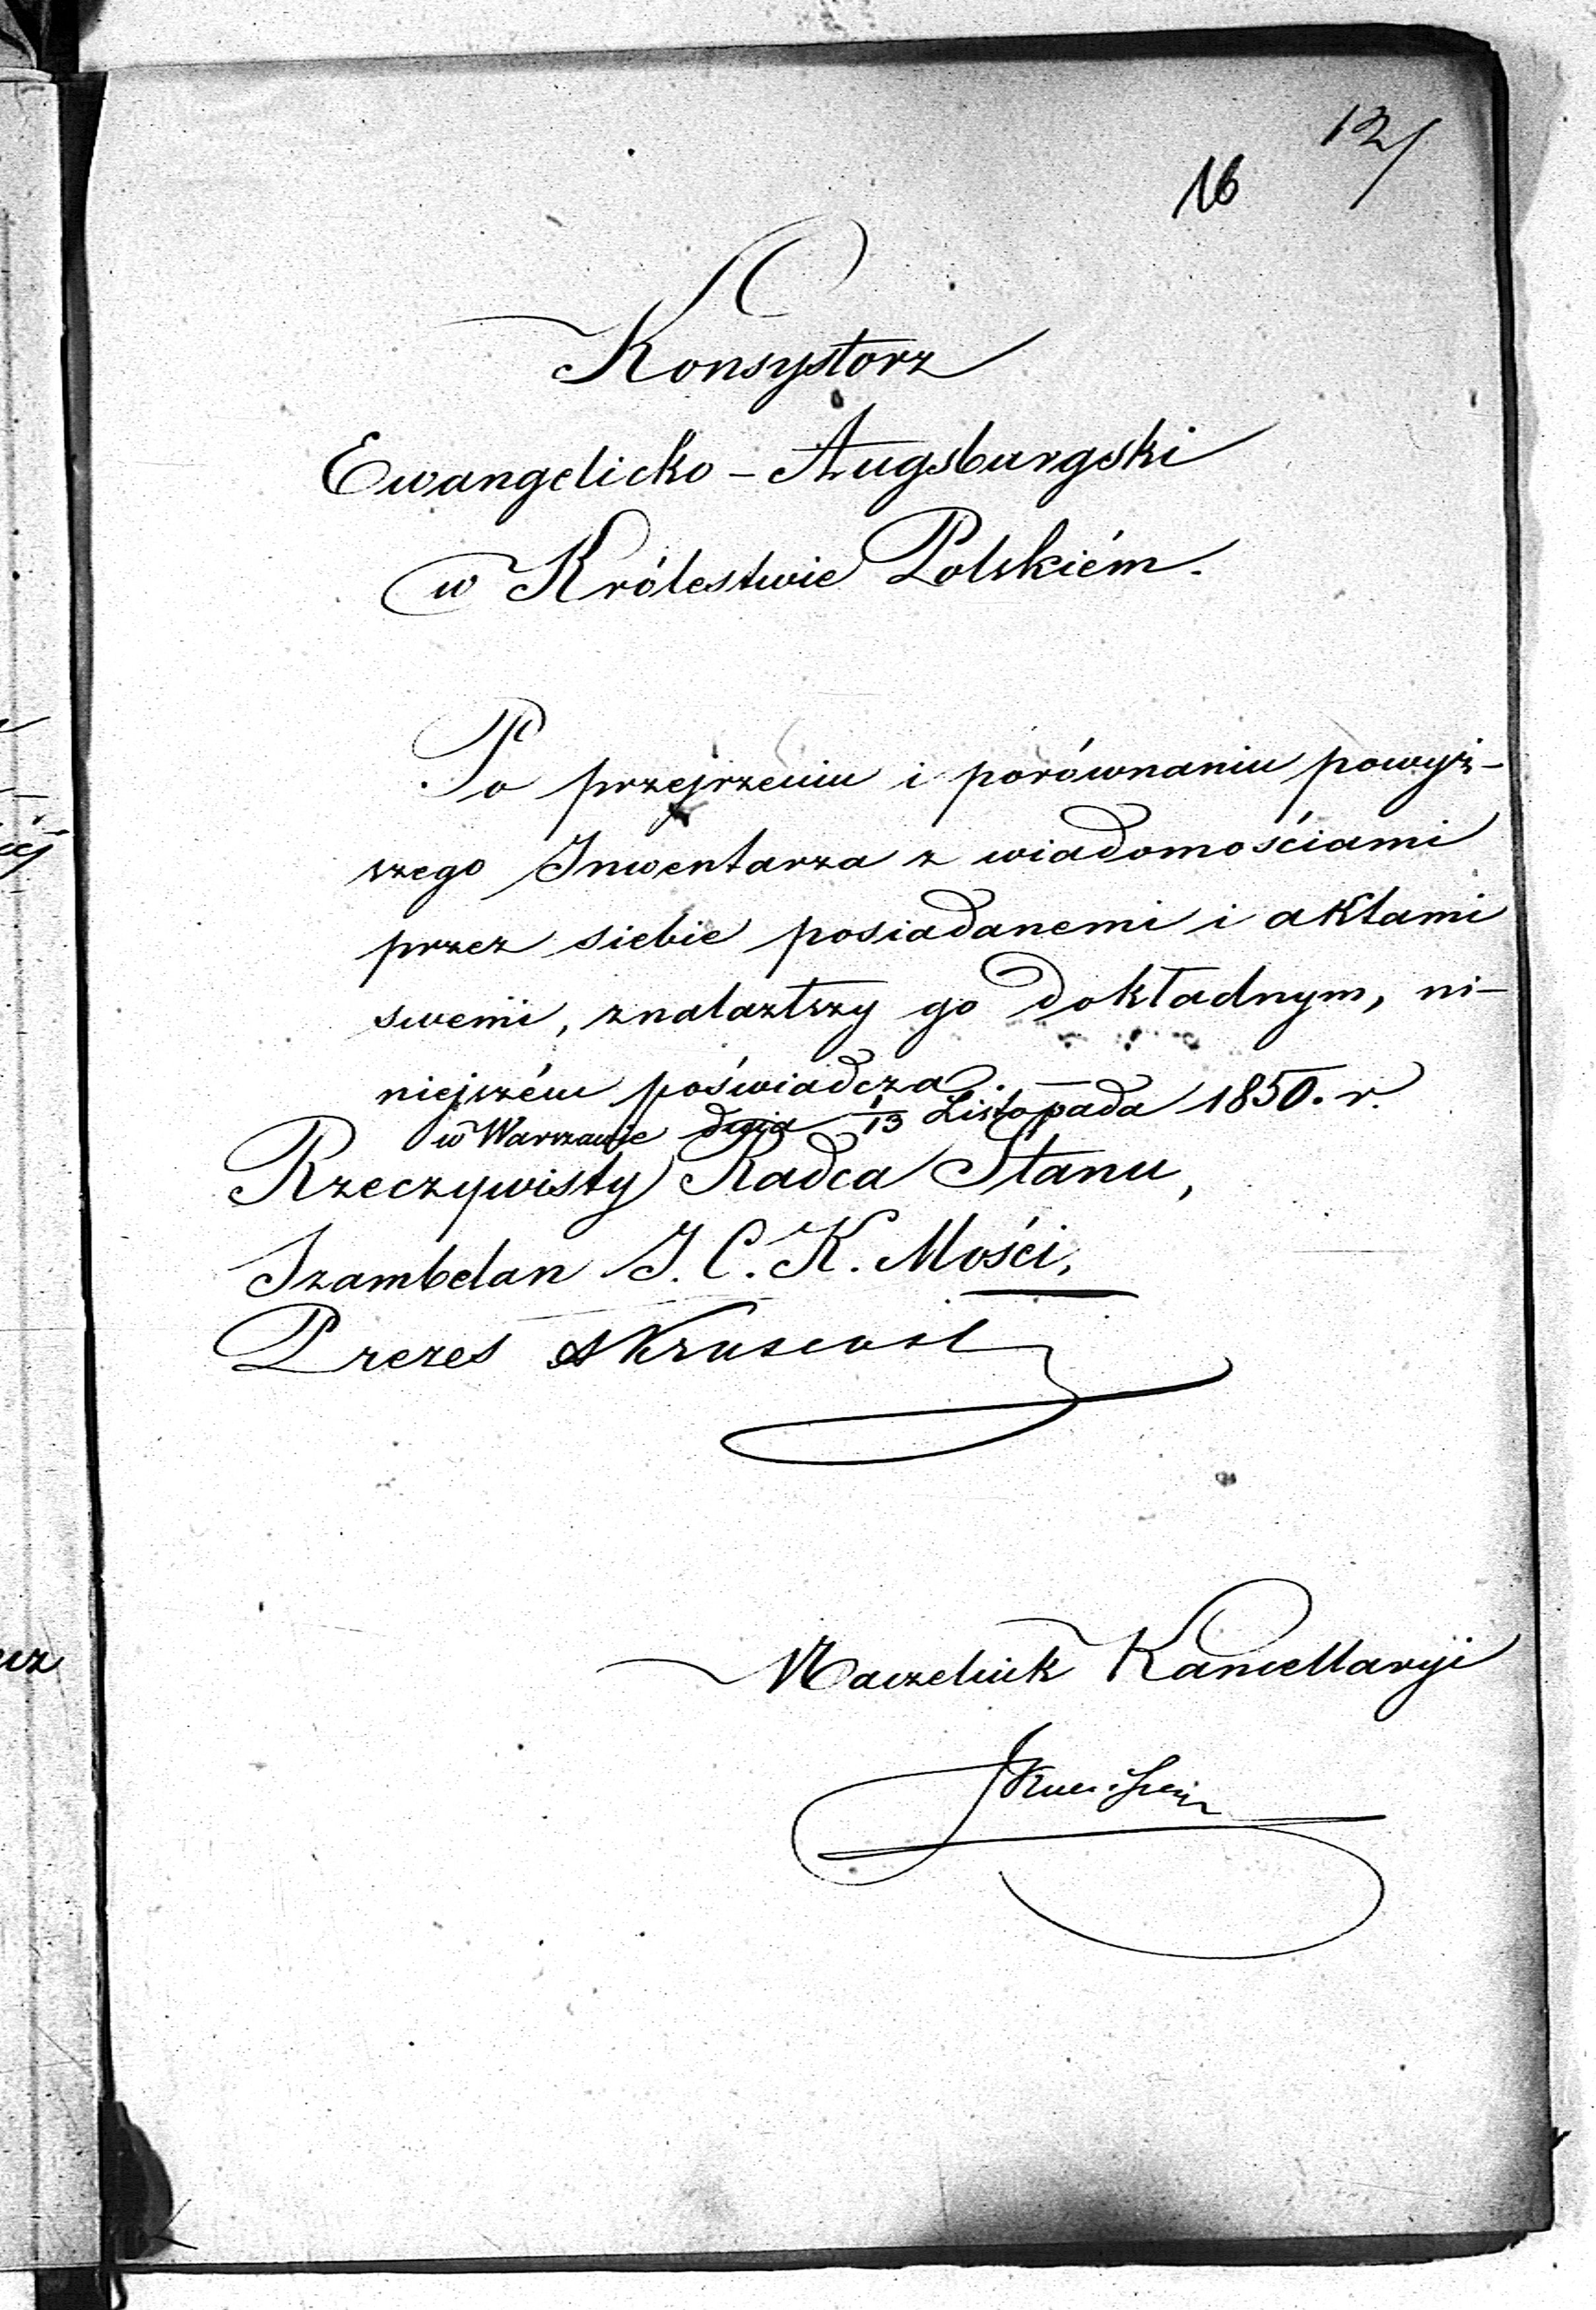 12/
16
Konsystorz
Ewangelicko - Augsburgski
w Królestwie Polskiém.
Po przejrzeniu i porównaniu powyż-
szego Inwentarza z wiadomościami
przez siebie posiadanemi i aktami
swemi, znalazłszy go dokładnym, ni-
niejszém poświadcza. —
w Warszawie dnia 1/13 Listopada 1850. r.
Rzeczywisty Radca Stanu,
Szambelan J. C. K. Mości,
Prezes
Naczelnik Kancellaryi